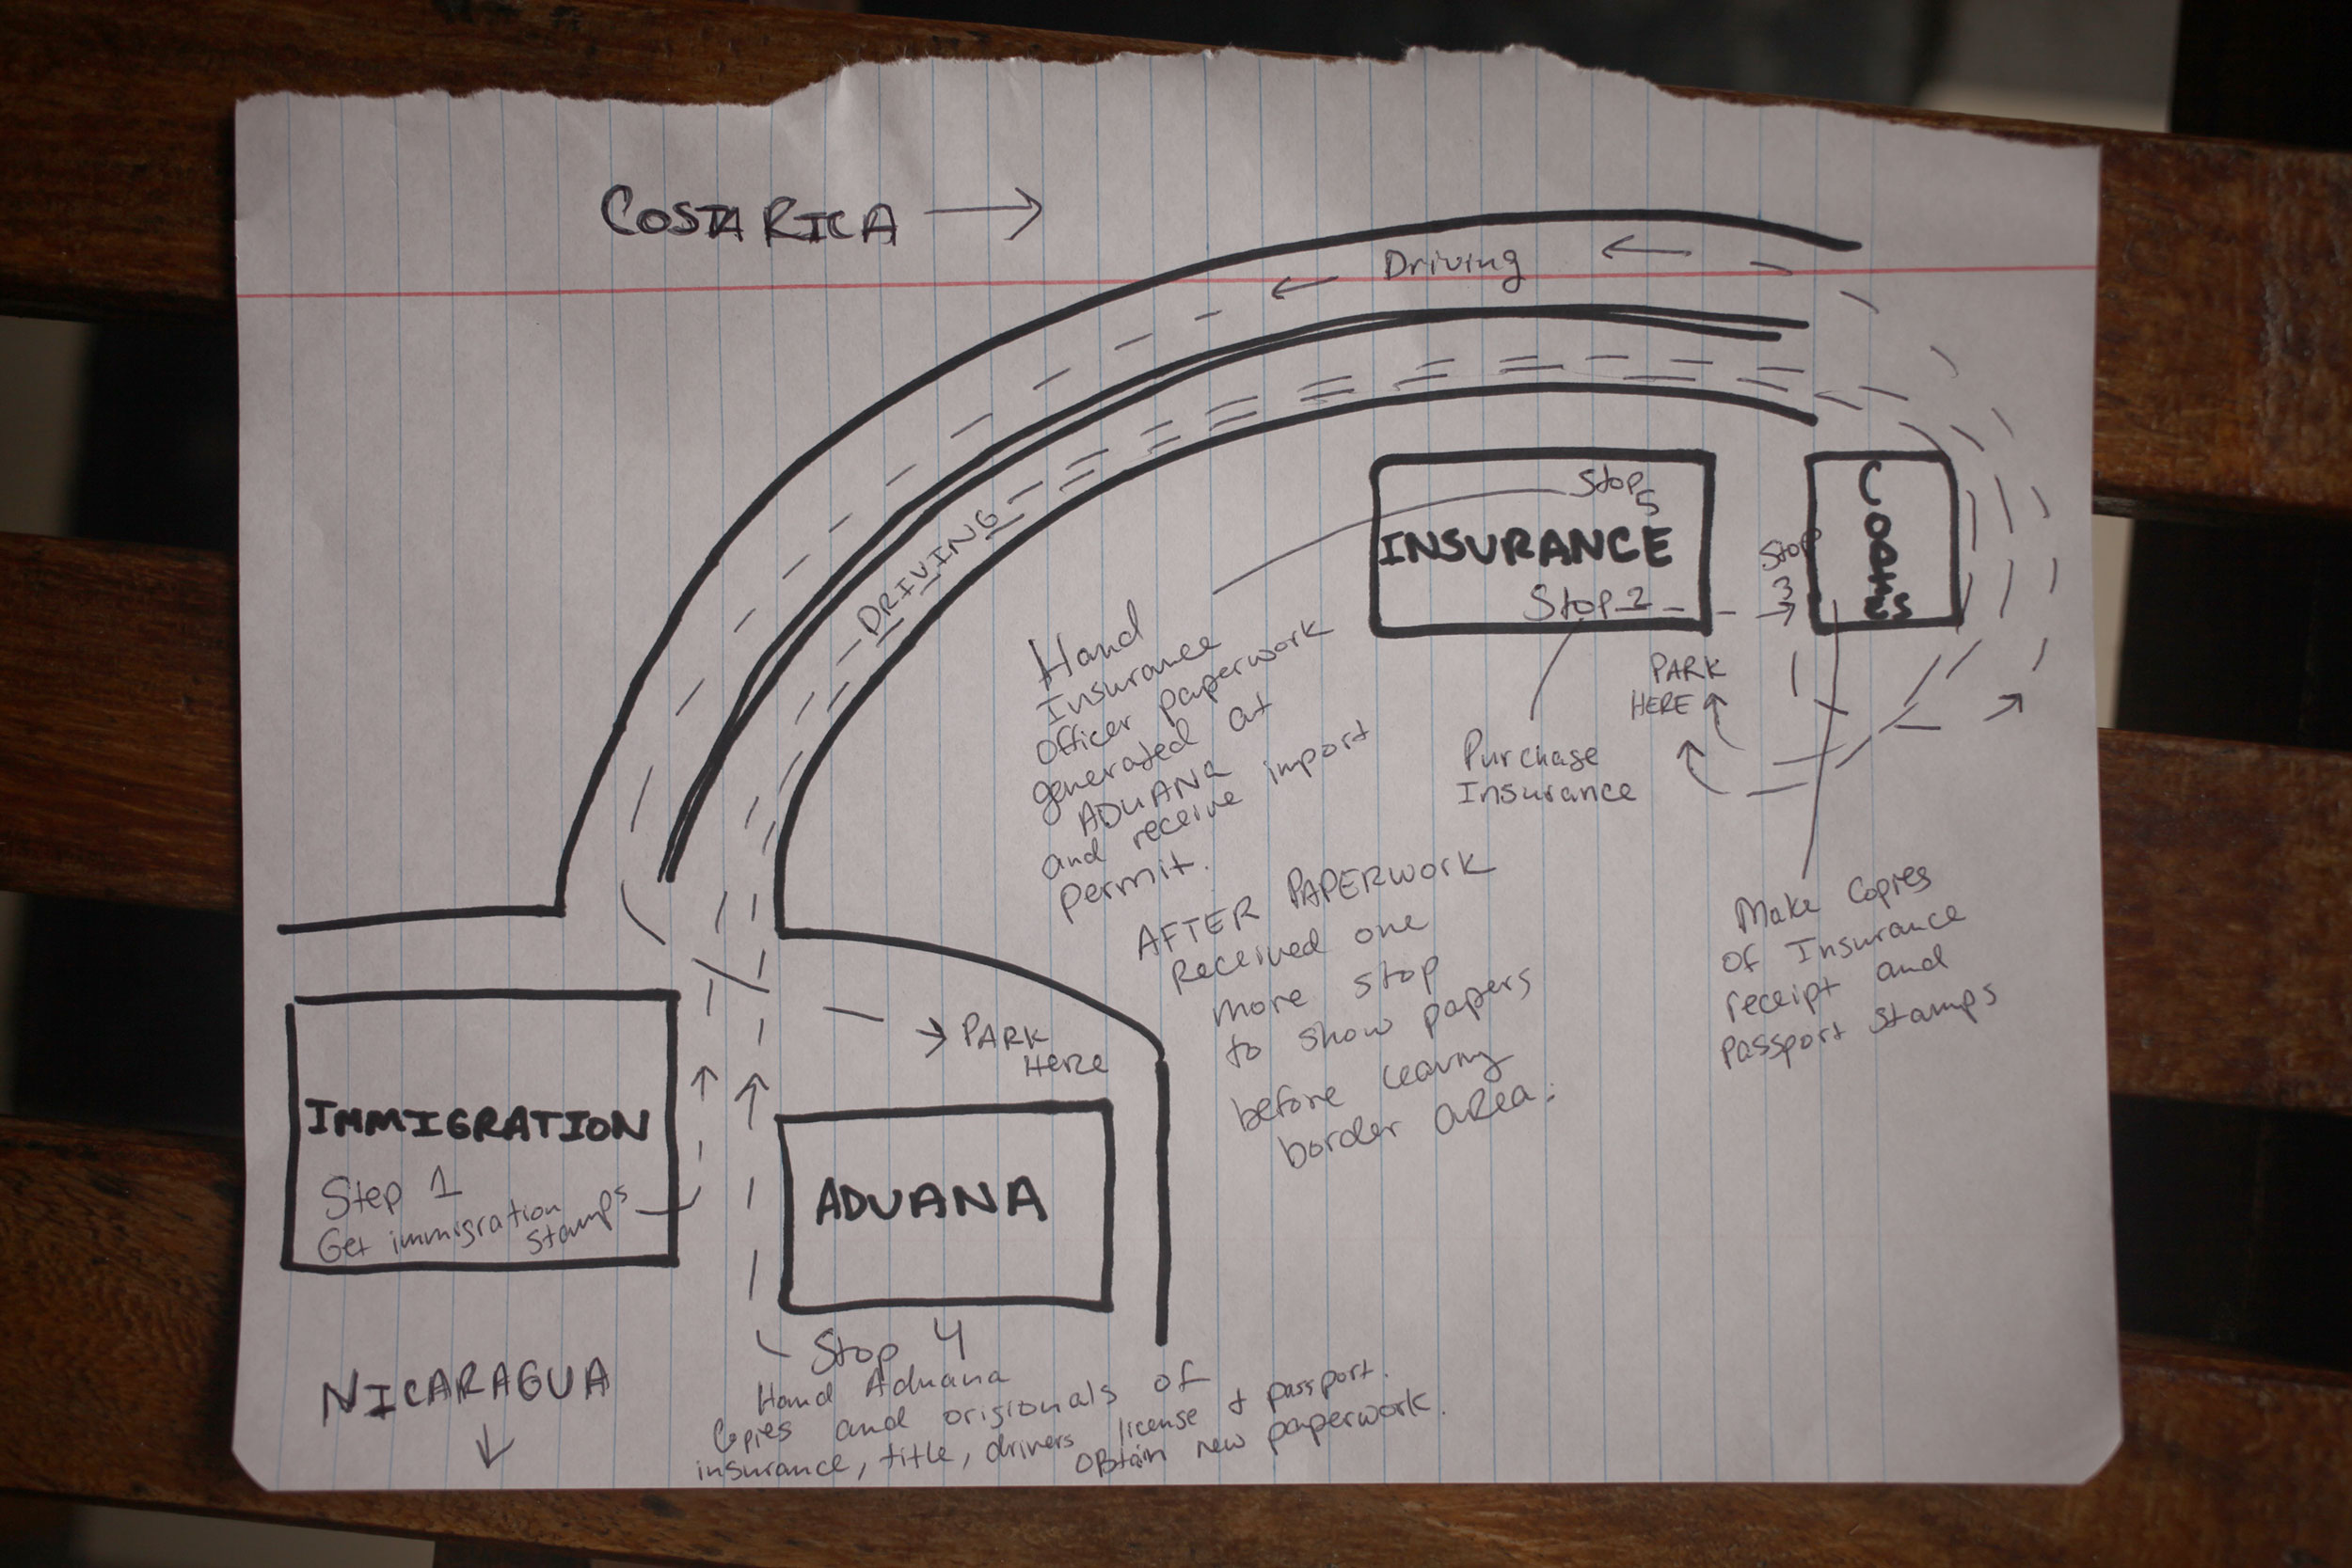 COSTA RICA
Driving
DRIVING
Stop 5
INSURANCE
Stop 2
Stop
3
COPIES
PARK
HERE
Purchase
Insurance
Hand
Insurance
Officer paperwork
generated at
ADUANA
and receive import
permit.
AFTER PAPERWORK
Received one
more stop
to show papers
before leaving
border area.
Make Copies
of Insurance
receipt and
passport stamps
PARK
HERE
IMMIGRATION
Step 1
Get immigration
stamps
ADUANA
NICARAGUA
Stop 4
Hand Aduana
Copies and origionals of
insurance, title, drivers license & passport.
Obtain new paperwork.